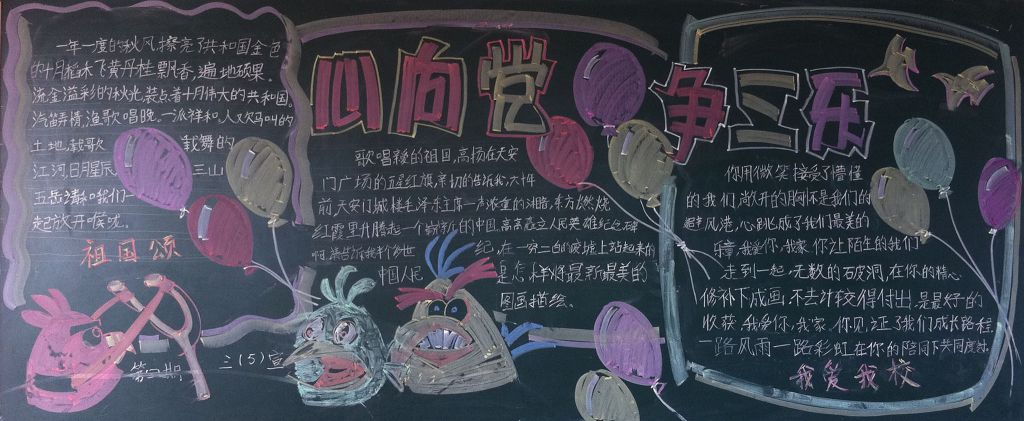 一年一度的秋风,擦亮了共和国金色
的十月稻禾飞黄丹桂飘香,遍地硕果。
流金溢彩的秋光,装点着十月伟大的共和国。
汽笛弄情,渔歌唱晚,一派祥和人又欢马叫的
土地,载歌 载舞的
江河,日月星辰, 三山
五岳请和我们一
起放开喉咙。
祖国颂
第一期 三(5)宣
心向党 争三乐
歌唱 的祖国,高扬在天安
门广场的五星红旗,亲切的告诉我,六十年
前天安门城楼毛泽东主席一声浓重的湘音,东方燃烧
红霞里升腾起一个崭新的中国,高高矗立人民英雄纪念碑
啊,
纪,在一穷二白的废墟上站起来的
中国人民 是怎样将最新最美的
图画描绘。
你用微笑接受了懵懂
的我们,敞开的胸怀是我们的
避风港,心跳成了我们最美的
乐章,我爱你,我家,你让陌生的我们
走到一起,无数的 在你的精心
修补下成画,不去计较得付出,是最好的
收获,我爱你,我家,你见证了我们成长路程
一路风雨一路彩虹在你的陪同下共同度过。
我爱我校